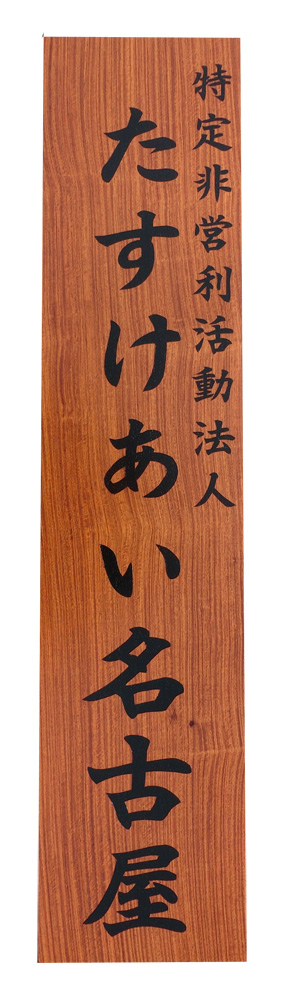 特定非営利活動法人
たすけあい名古屋